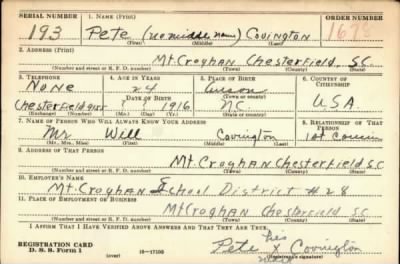 SERIAL NUMBER 1. NAME (Print) ORDER NUMBER
193 Pete (no middle name) Covington 1678
(First) (Middle) (Last)
2. ADDRESS (Print)
Mt. Croghan Chesterfield, S.C.
(Number and street or R. F. D. number) (Town) (County) (State)
3. TELEPHONE 4. AGE IN YEARS 5. PLACE OF BIRTH 6. COUNTRY OF CITIZENSHIP
None 24 Anson
DATE OF BIRTH (Town or county)
Chesterfield ? ? 1916 N.C. USA
(Exchange) (Number) (Mo.) (Day) (Yr.) (State or country)
7. NAME OF PERSON WHO WILL ALWAYS KNOW YOUR ADDRESS 8. RELATIONSHIP OF THAT PERSON
Mr Will Covington 1st Cousin
(Mr., Mrs., Miss) (First) (Middle) (Last)
9. ADDRESS OF THAT PERSON
Mt Croghan Chesterfield S.C
(Number and street or R. F. D. number) (Town) (County) (State)
10. EMPLOYER'S NAME
Mt. Croghan School District #28
11. PLACE OF EMPLOYMENT OR BUSINESS
Mt Croghan Chesterfield S.C
(Number and street or R. F. D. number) (Town) (County) (State)
I AFFIRM THAT I HAVE VERIFIED ABOVE ANSWERS AND THAT THEY ARE TRUE.
his
REGISTRATION CARD Pete X Covington
D. S. S. Form 1 (over) 16—17105 mark (Registrant's signature)